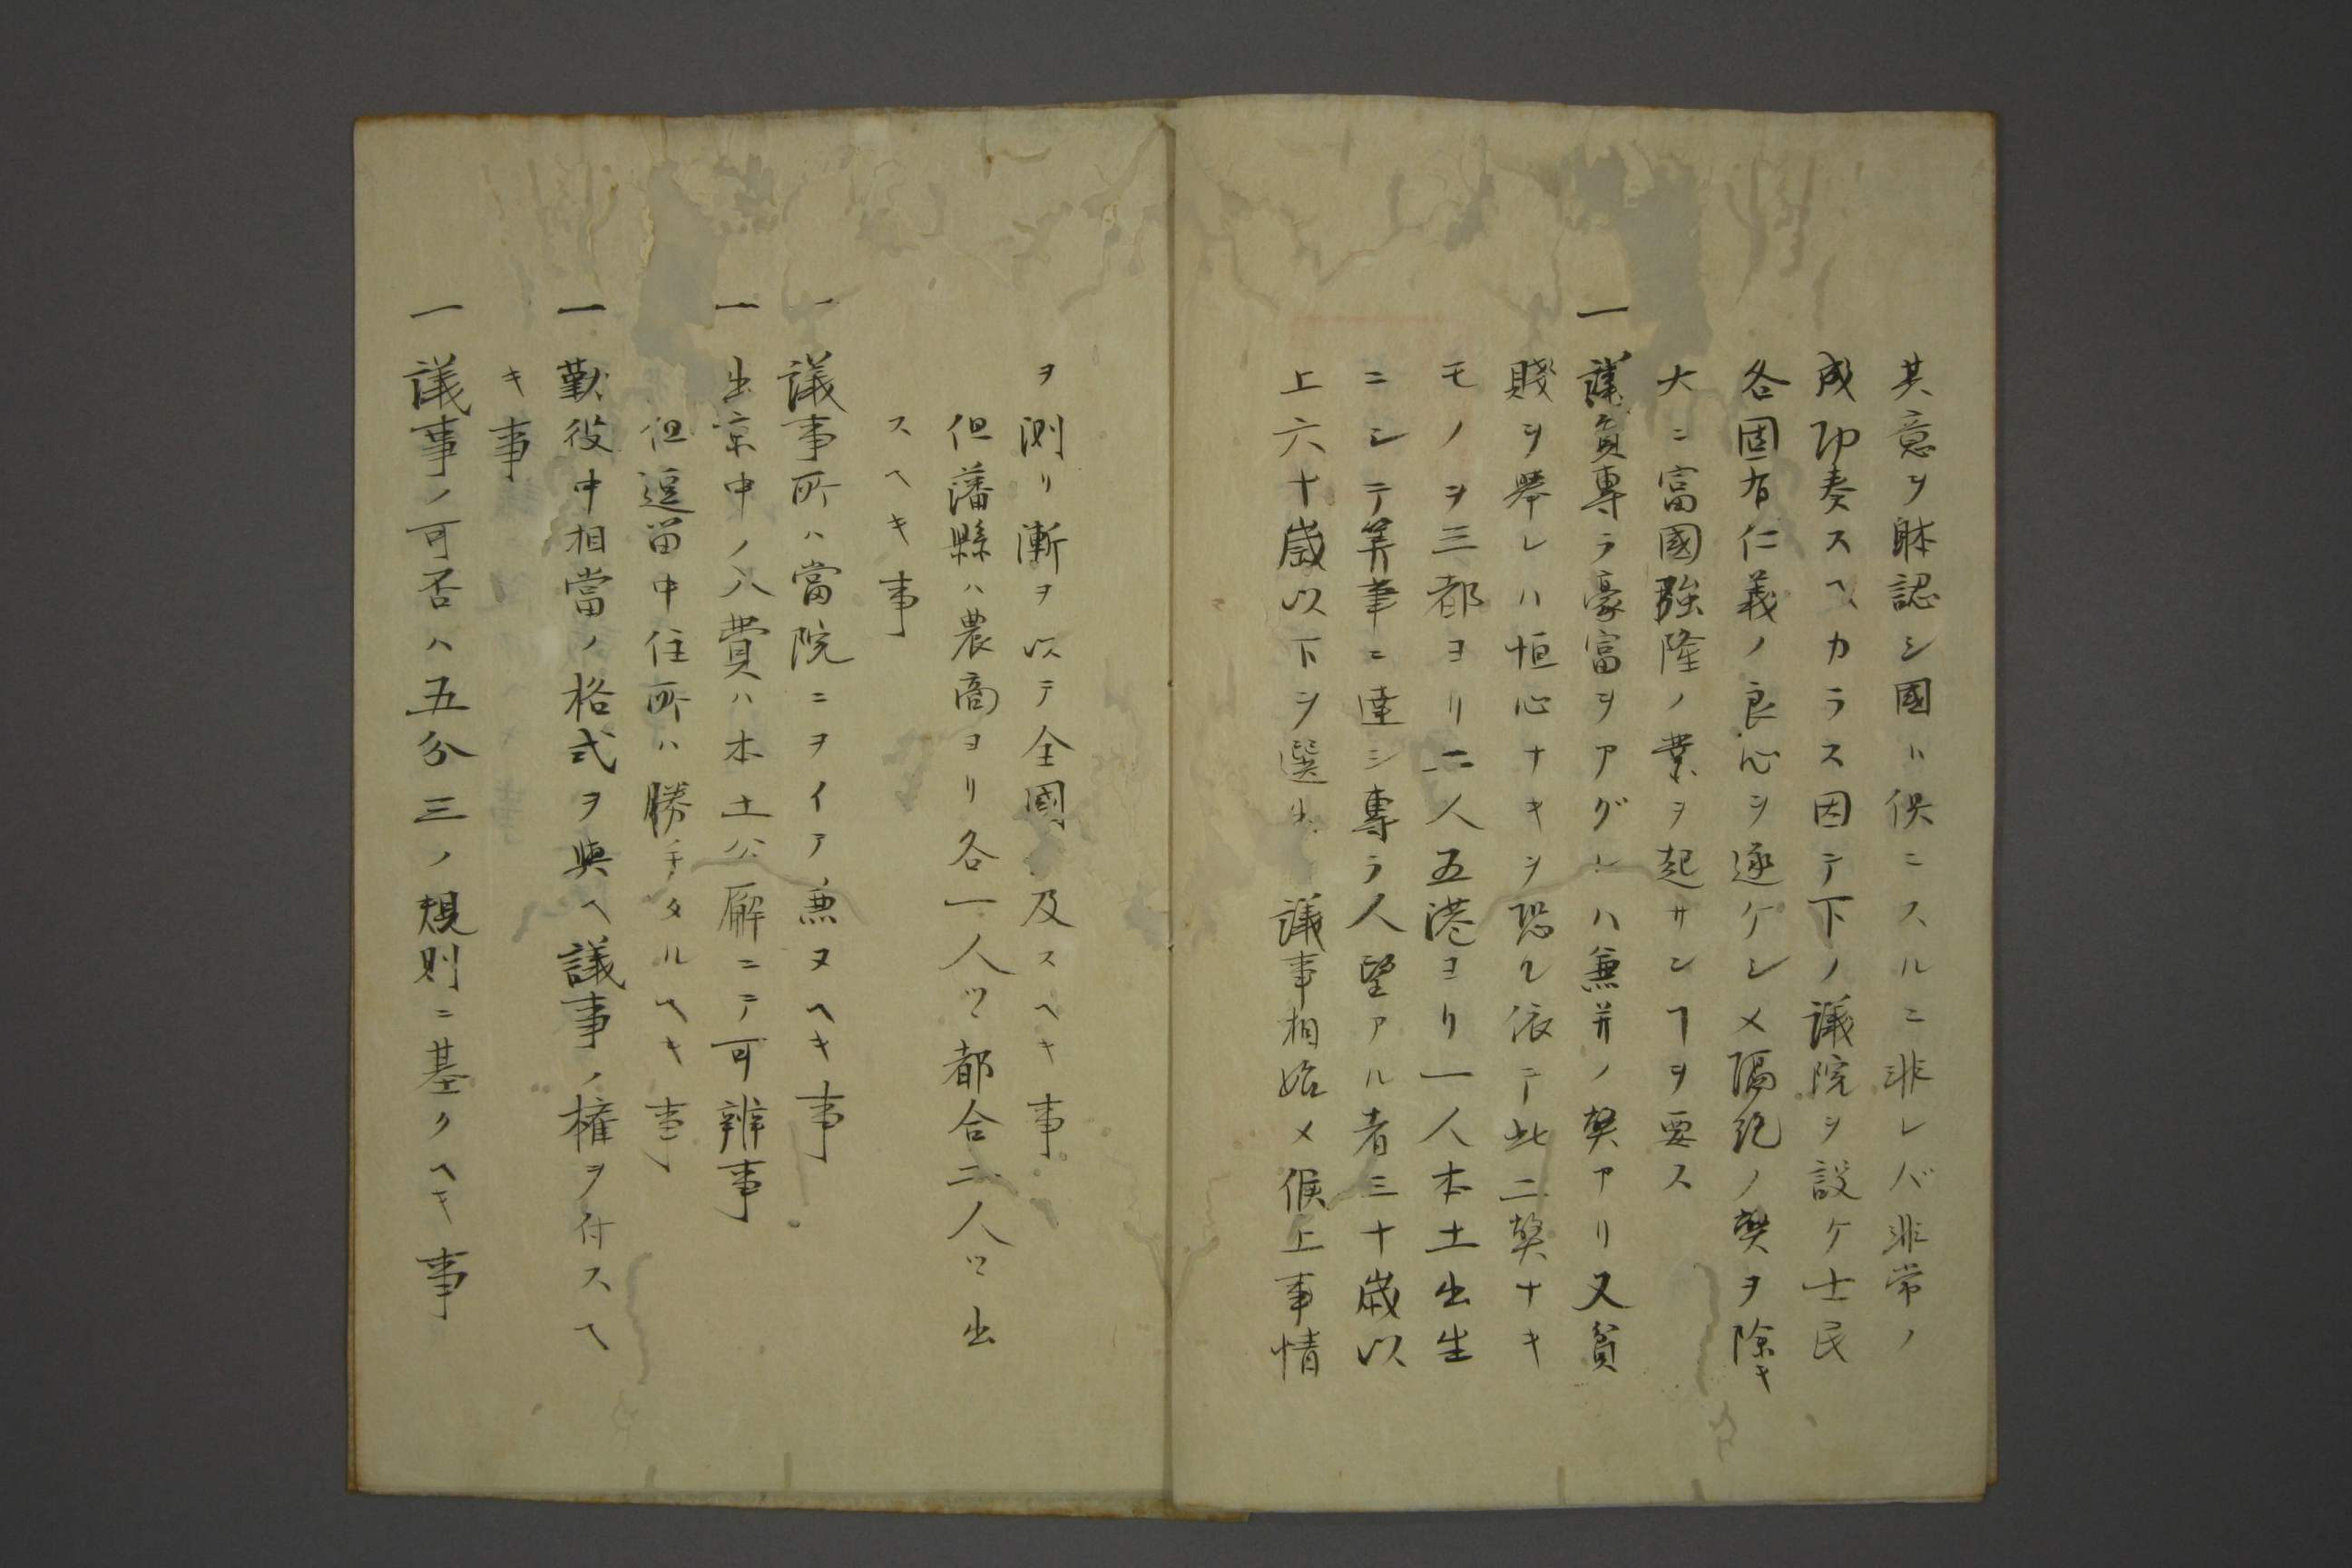 其意ヲ躰認シ國ト倶ニスルニ非レバ非常ノ
成功奏スヘカラス因テ下ノ議院ヲ設ケ士民
各固有仁義ノ良心ヲ逐ケシメ隔絶ノ獘ヲ除キ
大ニ富國強隆ノ業ヲ起サンヿヲ要ス
一議員專ラ豪富ヲアグレハ兼并ノ獘アリ又貧
賤ヲ舉レハ恒心ナキヲ恐ル依テ此二獘ナキ
モノヲ三都ヨリ二人五港ヨリ一人本土出生
ニシテ筭筆ニ達シ專ラ人望アル者三十歳以
上六十歳以下ヲ選出議事相始メ候上事情
ヲ測リ漸ヲ以テ全國ニ及スヘキ事
但藩縣ハ農商ヨリ各一人ツヽ都合二人ツヽ出
スヘキ事
一議事所ハ當院ニヲイテ兼ヌヘキ事
一出京中ノ入費ハ本土公廨ニテ可辨事
但逗留中住所ハ勝手タルヘキ事
一勤役中相當ノ格式ヲ與ヘ議事ノ権ヲ付スヘ
キ事
一議事ノ可否ハ五分三ノ規則ニ基クヘキ事